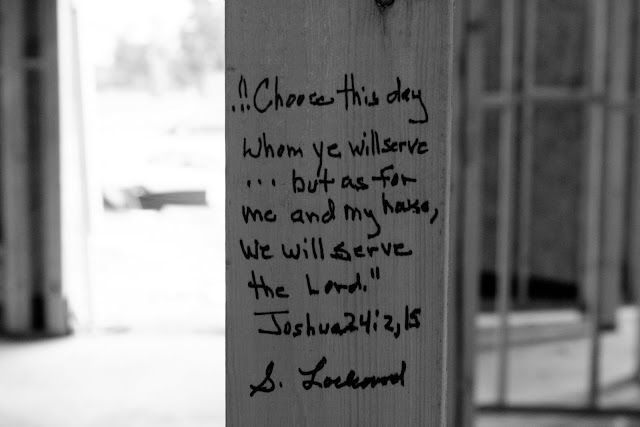 ..."Choose this day
whom ye will serve
... but as for
me and my house,
we will serve
the Lord."
Joshua 24:2,15
S. Lockwood